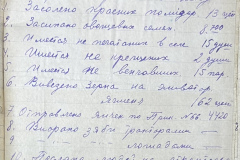 Засолено красных помидор 13 цен
2. Засыпано овощевых семян 8,700
3. Имеется не посещающих в селе 15 душ
4. Имеется не крещеных 2 души
5. Имеется не венчавших 15 пар
6. Вывезено зерна на элеватор
Ячменя 162 цен
7. Отправлено яичек по Прик. №66 4420
8. Вспахано зяби тракторами —
— лошадями